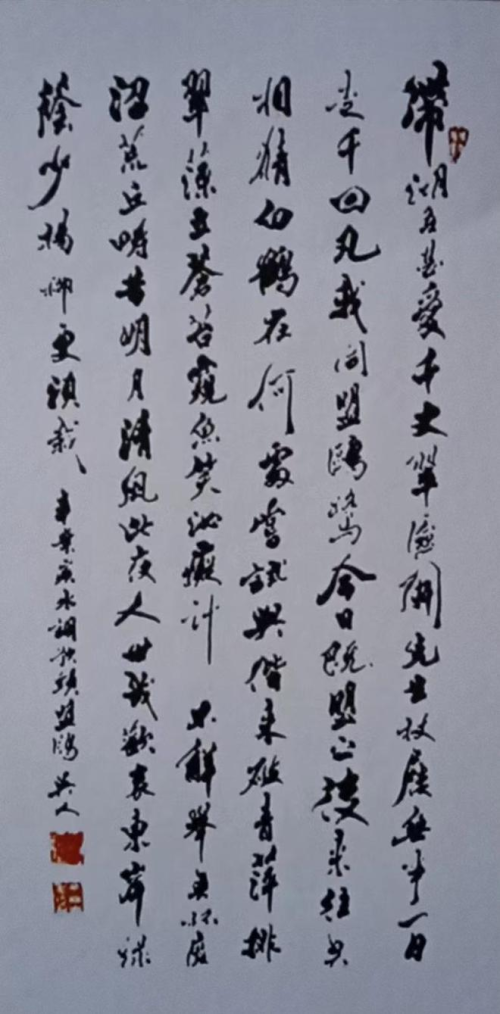 帶湖吾甚愛千丈翠奩開先生杖屨無事一日
走千回凡我同盟鷗鷺今日既盟之後來往莫
相猜白鶴在何處嘗試與偕來破青萍排
翠藻立蒼苔窺魚笑汝癡計不解舉吾杯廢
沼荒丘疇昔明月清風此夜人世幾歡哀東岸綠
蔭少楊柳更須栽 辛棄疾水調歌頭盟鷗